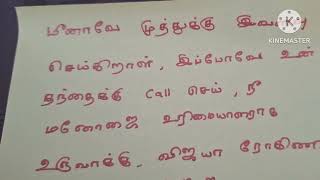 மீனாவே முத்துக்கு
KINEMASTER
செய்கிறாள், இப்போவே உன்
தந்தைக்கு Call செய், நீ
மனோஜை உரிமையாளராக
உருவாக்கு, விஜயா ரோகிணி